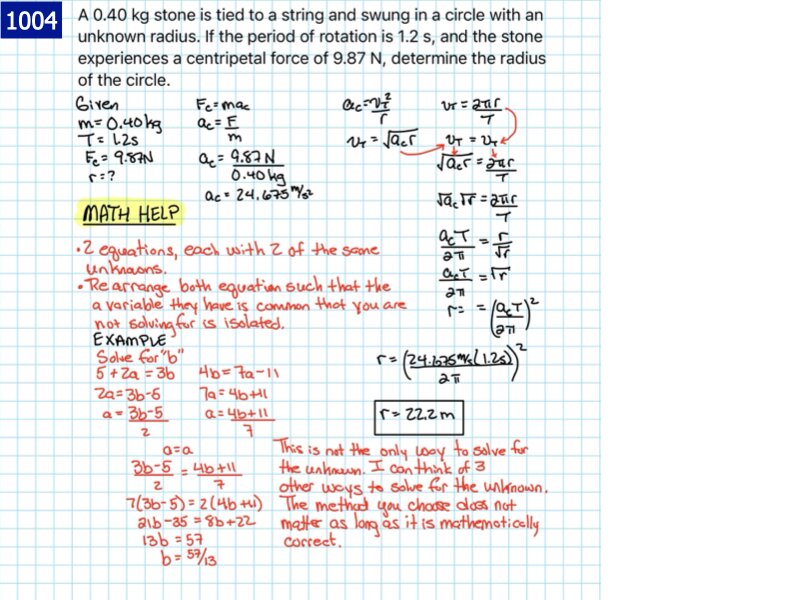 1004
A 0.40 kg stone is tied to a string and swung in a circle with an
unknown radius. If the period of rotation is 1.2 s, and the stone
experiences a centripetal force of 9.87 N, determine the radius
of the circle.
Given
m= 0.40kg
T= 1.2s
Fc= 9.87N
r=?
Fc=mac
ac= F/m
ac= 9.87N/0.40kg
ac= 24.675 m/s²
ac=vT²/r
vT=√acr
vT=2πr/T
vT = vT
√acr = 2πr/T
√ac√r = 2πr/T
acT/2π = r/√r
acT/2π = √r
r= = (acT/2π)²
r= (24.675m/s(1.2s)/2π)²
r= 22.2m
MATH HELP
•2 equations, each with 2 of the same
unknowns.
•Rearrange both equation such that the
a variable they have is common that you are
not solving for is isolated.
EXAMPLE
Solve for "b"
5+2a=3b 4b=7a-11
2a=3b-5 7a=4b+11
a=3b-5/2 a=4b+11/7
a=a
3b-5/2 = 4b+11/7
7(3b-5)=2(4b+11)
21b-35=8b+22
13b=57
b=57/13
This is not the only way to solve for
the unknown. I can think of 3
other ways to solve for the unknown.
The method you choose does not
matter as long as it is mathematically
correct.